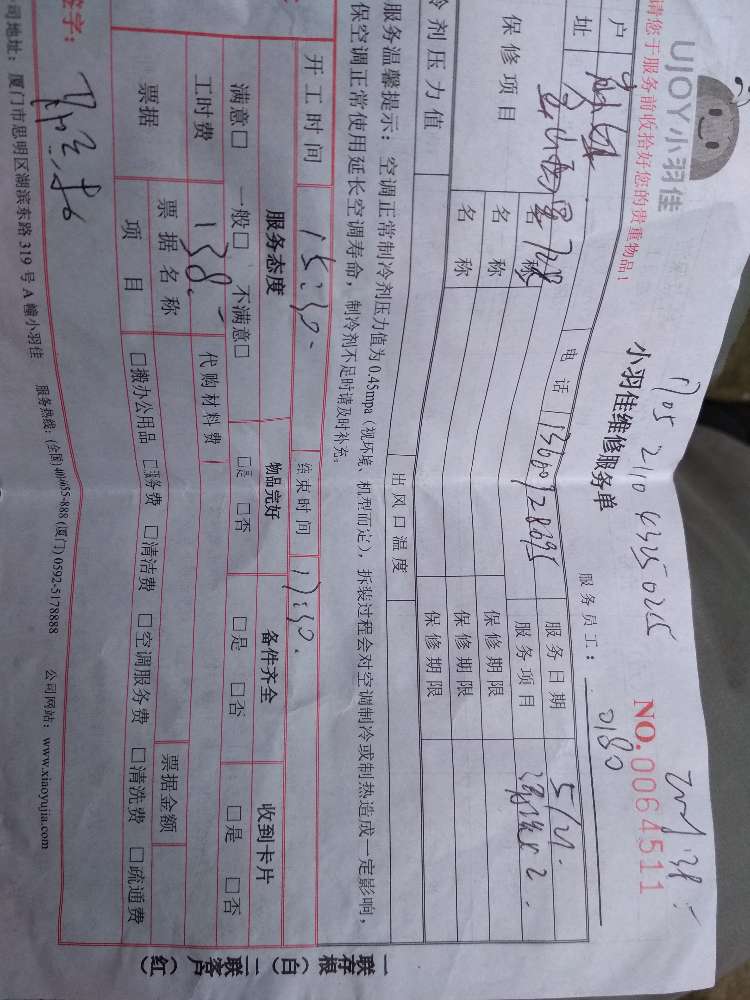 UJOY小羽佳
1705 2110 4325 0255
请您于服务前收拾好您的贵重物品!
小羽佳维修服务单
NO.0064511
服务员工: 0180
户
址
728
电话
服务日期 5/21.
保修项目
名称
服务项目
名称
保修期限
名称
保修期限
保修期限
冷剂压力值
出风口温度
服务温馨提示:空调正常制冷剂压力值为0.45mpa(视环境、机型而定),拆装过程会对空调制冷或制热造成一定影响,
保空调正常使用延长空调寿命,制冷剂不足时请及时补充。
开工时间 15:30. 结束时间 17:30.
服务态度 物品完好 备件齐全 收到卡片
满意□ 一般□ 不满意□ □是 □否 □是 □否 □是 □否
工时费 138. 代购材料费
票据 票据名称 票据金额
项目 □搬办公用品 □服务费 □清洁费 □空调服务费 □清洗费 □疏通费
签字:
司地址:厦门市思明区湖滨东路319号A幢小羽佳 服务热线:(全国)4006655-888 (厦门) 0592-5178888 公司网站:www.xiaoyujia.com
一联存根(白)二联客户(红)